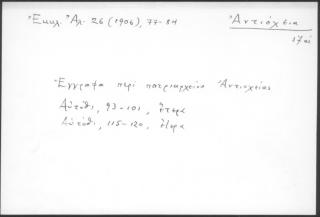 Ἐκκλ. Ἀλ. 26 (1906), 77-84
Ἀντιόχεια
17 αἰ
Ἔγγραφα περὶ πατριαρχείου Ἀντιοχείας
Αὐτόθι, 93-101, ἕτερα
Αὐτόθι, 115-120, ἕτερα